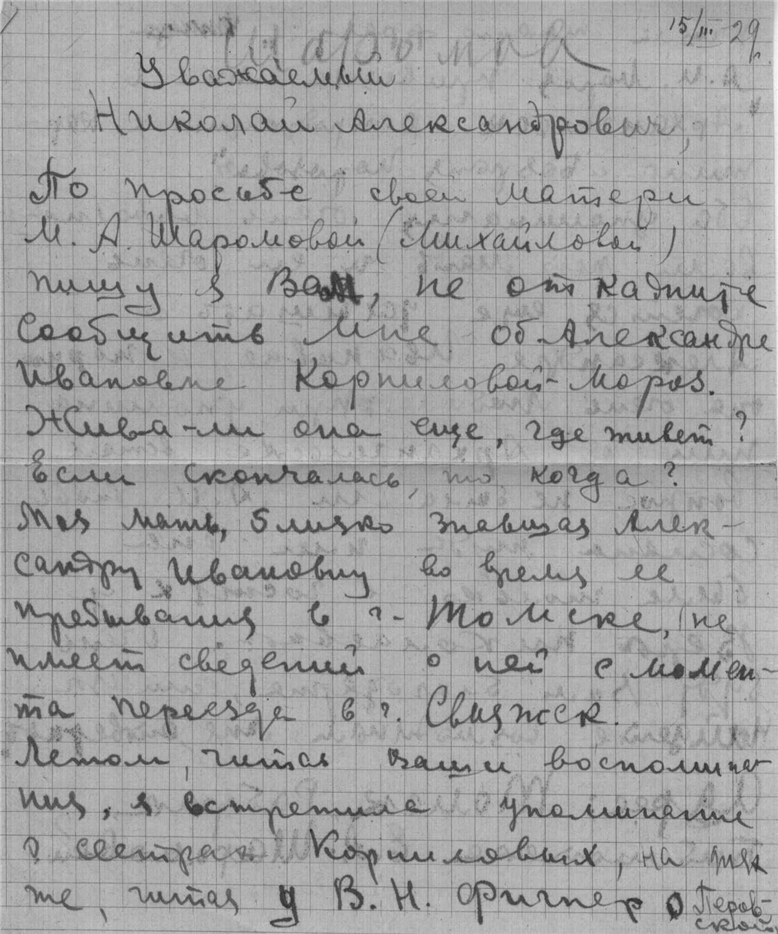 15/III-29 г.
Уважаемый
Николай Александрович,
По просьбе своей матери
М. А. Шаромовой (Михайловой)
пишу я Вам, не откажите
сообщить мне об Александре
Ивановне Корниловой-Мороз.
Жива-ли она еще, где живет?
Если скончалась, то когда?
Моя мать, близко знавшая Алек-
сандру Ивановну во время ее
пребывания в г. Томске, не
имеет сведений о ней с момен-
та переезда в г. Свияжск.
Летом, читая Ваши воспомина-
ния, я встретила упоминание
о сестрах Корниловых, на
же, читая у В. Н. Фигнер о Перов-
ской